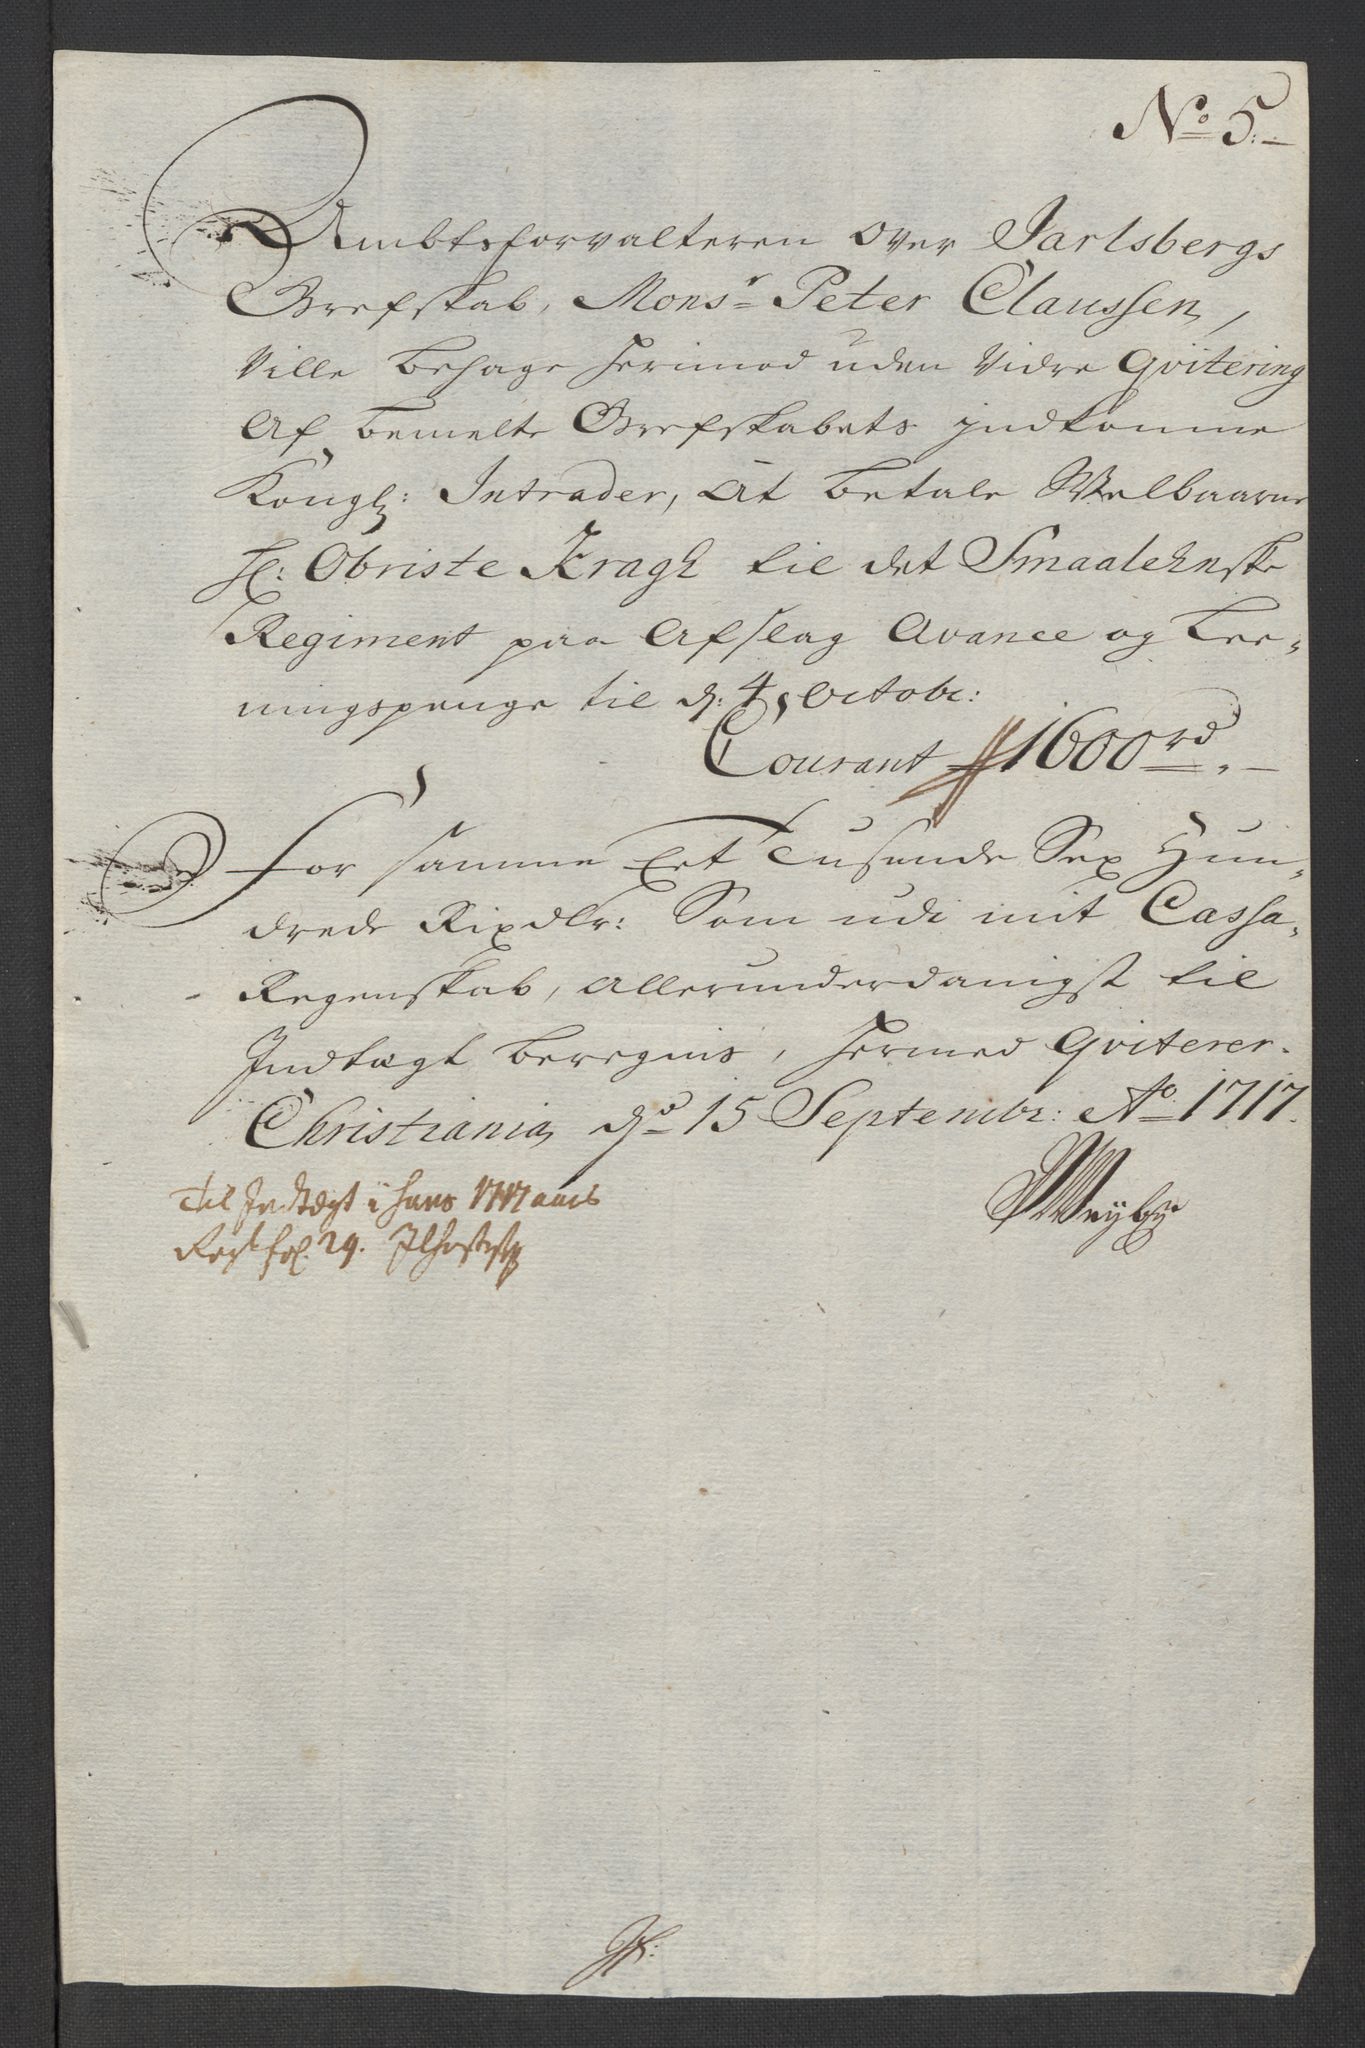 No 5.
Ambtsforvalteren over Jarlsbergs
Grefskab, Monsr Peter Claussen,
Ville behage herimod uden Vidre Qvitering
Af bemelte Grefskabets indkomme
Kongl: Intrader, At betale Welbaarne
H: Obriste Kragh til det Smaalehnske
Regiment paa Afslag Avance og Ler-
ningspenge til d: 4 Octobr:
Courant 1600 rd
For samme Eet Tusende Sex Hun-
drede Rixdlr: Som udi mit Cassa-
Regenskab, Allerunderdanigst til
Indtægt beregnis, hermed Qviterer.
Christiania d 15 Septembr: Ao 1717.
Til Indtægt i hans 1717 aars
Regsk fol. 29.